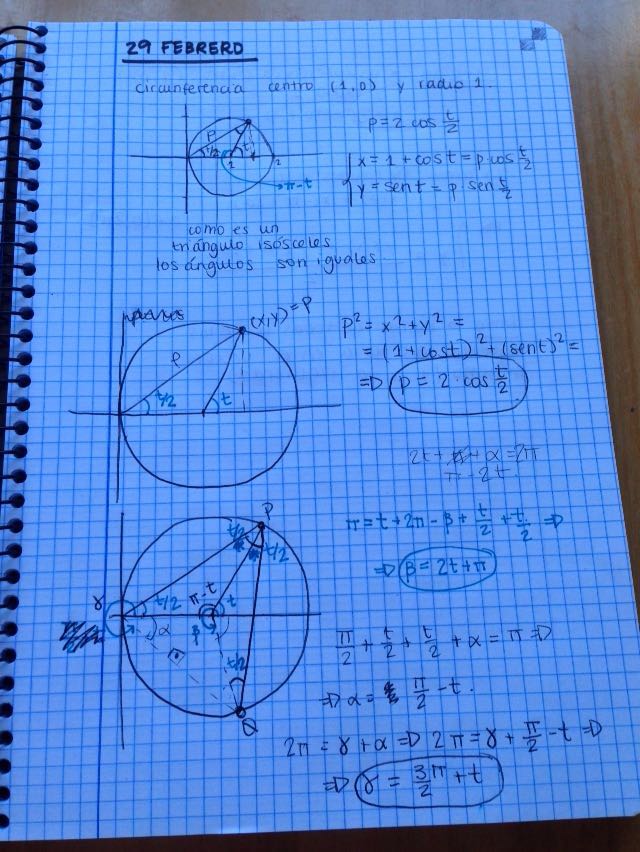 29 FEBRERO
circunferencia centro (1,0) y radio 1.
ρ = 2 cos t/2
ρ
t/2
t
1
2
π-t
x = 1 + cost = ρ cos t/2
y = sent = ρ sen t/2
como es un
triángulo isósceles
los ángulos son iguales
(x,y) = P
ρ
t/2
t
ρ² = x² + y² =
= (1+cost)² + (sent)² =
=D ρ = 2·cos t/2
2t + α = 2π
π - 2t
P
t/2
t/2
γ
t/2
π-t
t
α
β
t/2
Q
π = t + 2π - β + t/2 + t/2 =D
=D β = 2t + π
π/2 + t/2 + t/2 + α = π =D
=D α = π/2 - t.
2π = γ + α =D 2π = γ + π/2 - t =D
=D γ = 3/2 π + t